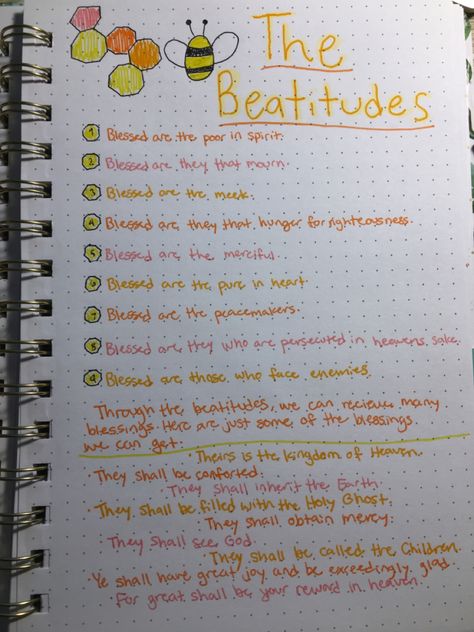 The
Beatitudes
1 Blessed are the poor in spirit.
2 Blessed are they that mourn.
3 Blessed are the meek.
4 Blessed are they that hunger for righteousness.
5 Blessed are the merciful.
6 Blessed are the pure in heart.
7 Blessed are the peacemakers.
8 Blessed are they who are persecuted in heavens sake.
9 Blessed are those who face enemies.
Through the beatitudes, we can recieve many
blessings. Here are just some of the blessings
we can get.
· Theirs is the kingdom of Heaven.
· They shall be comforted.
· They shall inherit the Earth.
· They shall be filled with the Holy Ghost.
· They shall obtain mercy.
· They shall see God.
· They shall be called the Children.
· Ye shall have great joy and be exceedingly glad.
For great shall be your reward in heaven.